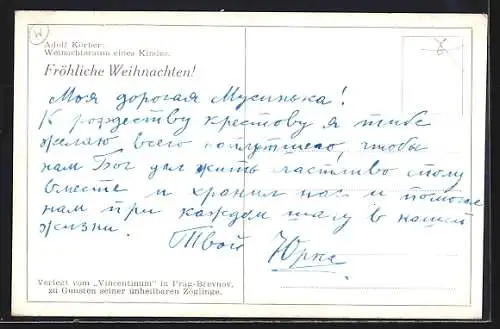 Adolf Körber:
Weihnachtstraum eines Kindes.
Fröhliche Weihnachten!
Моя дорогая Мусинька!
К рождеству крестову я тибе
желаю всего наилутшего, чтобы
нам Бог дал жить счастливо
вместе и хранил нас и помогал
нам при каждом шагу в нашей
жизни.
Твой Юрка
Verlegt vom „Vincentinum" in Prag-Břevnov,
zu Gunsten seiner unheilbaren Zöglinge.